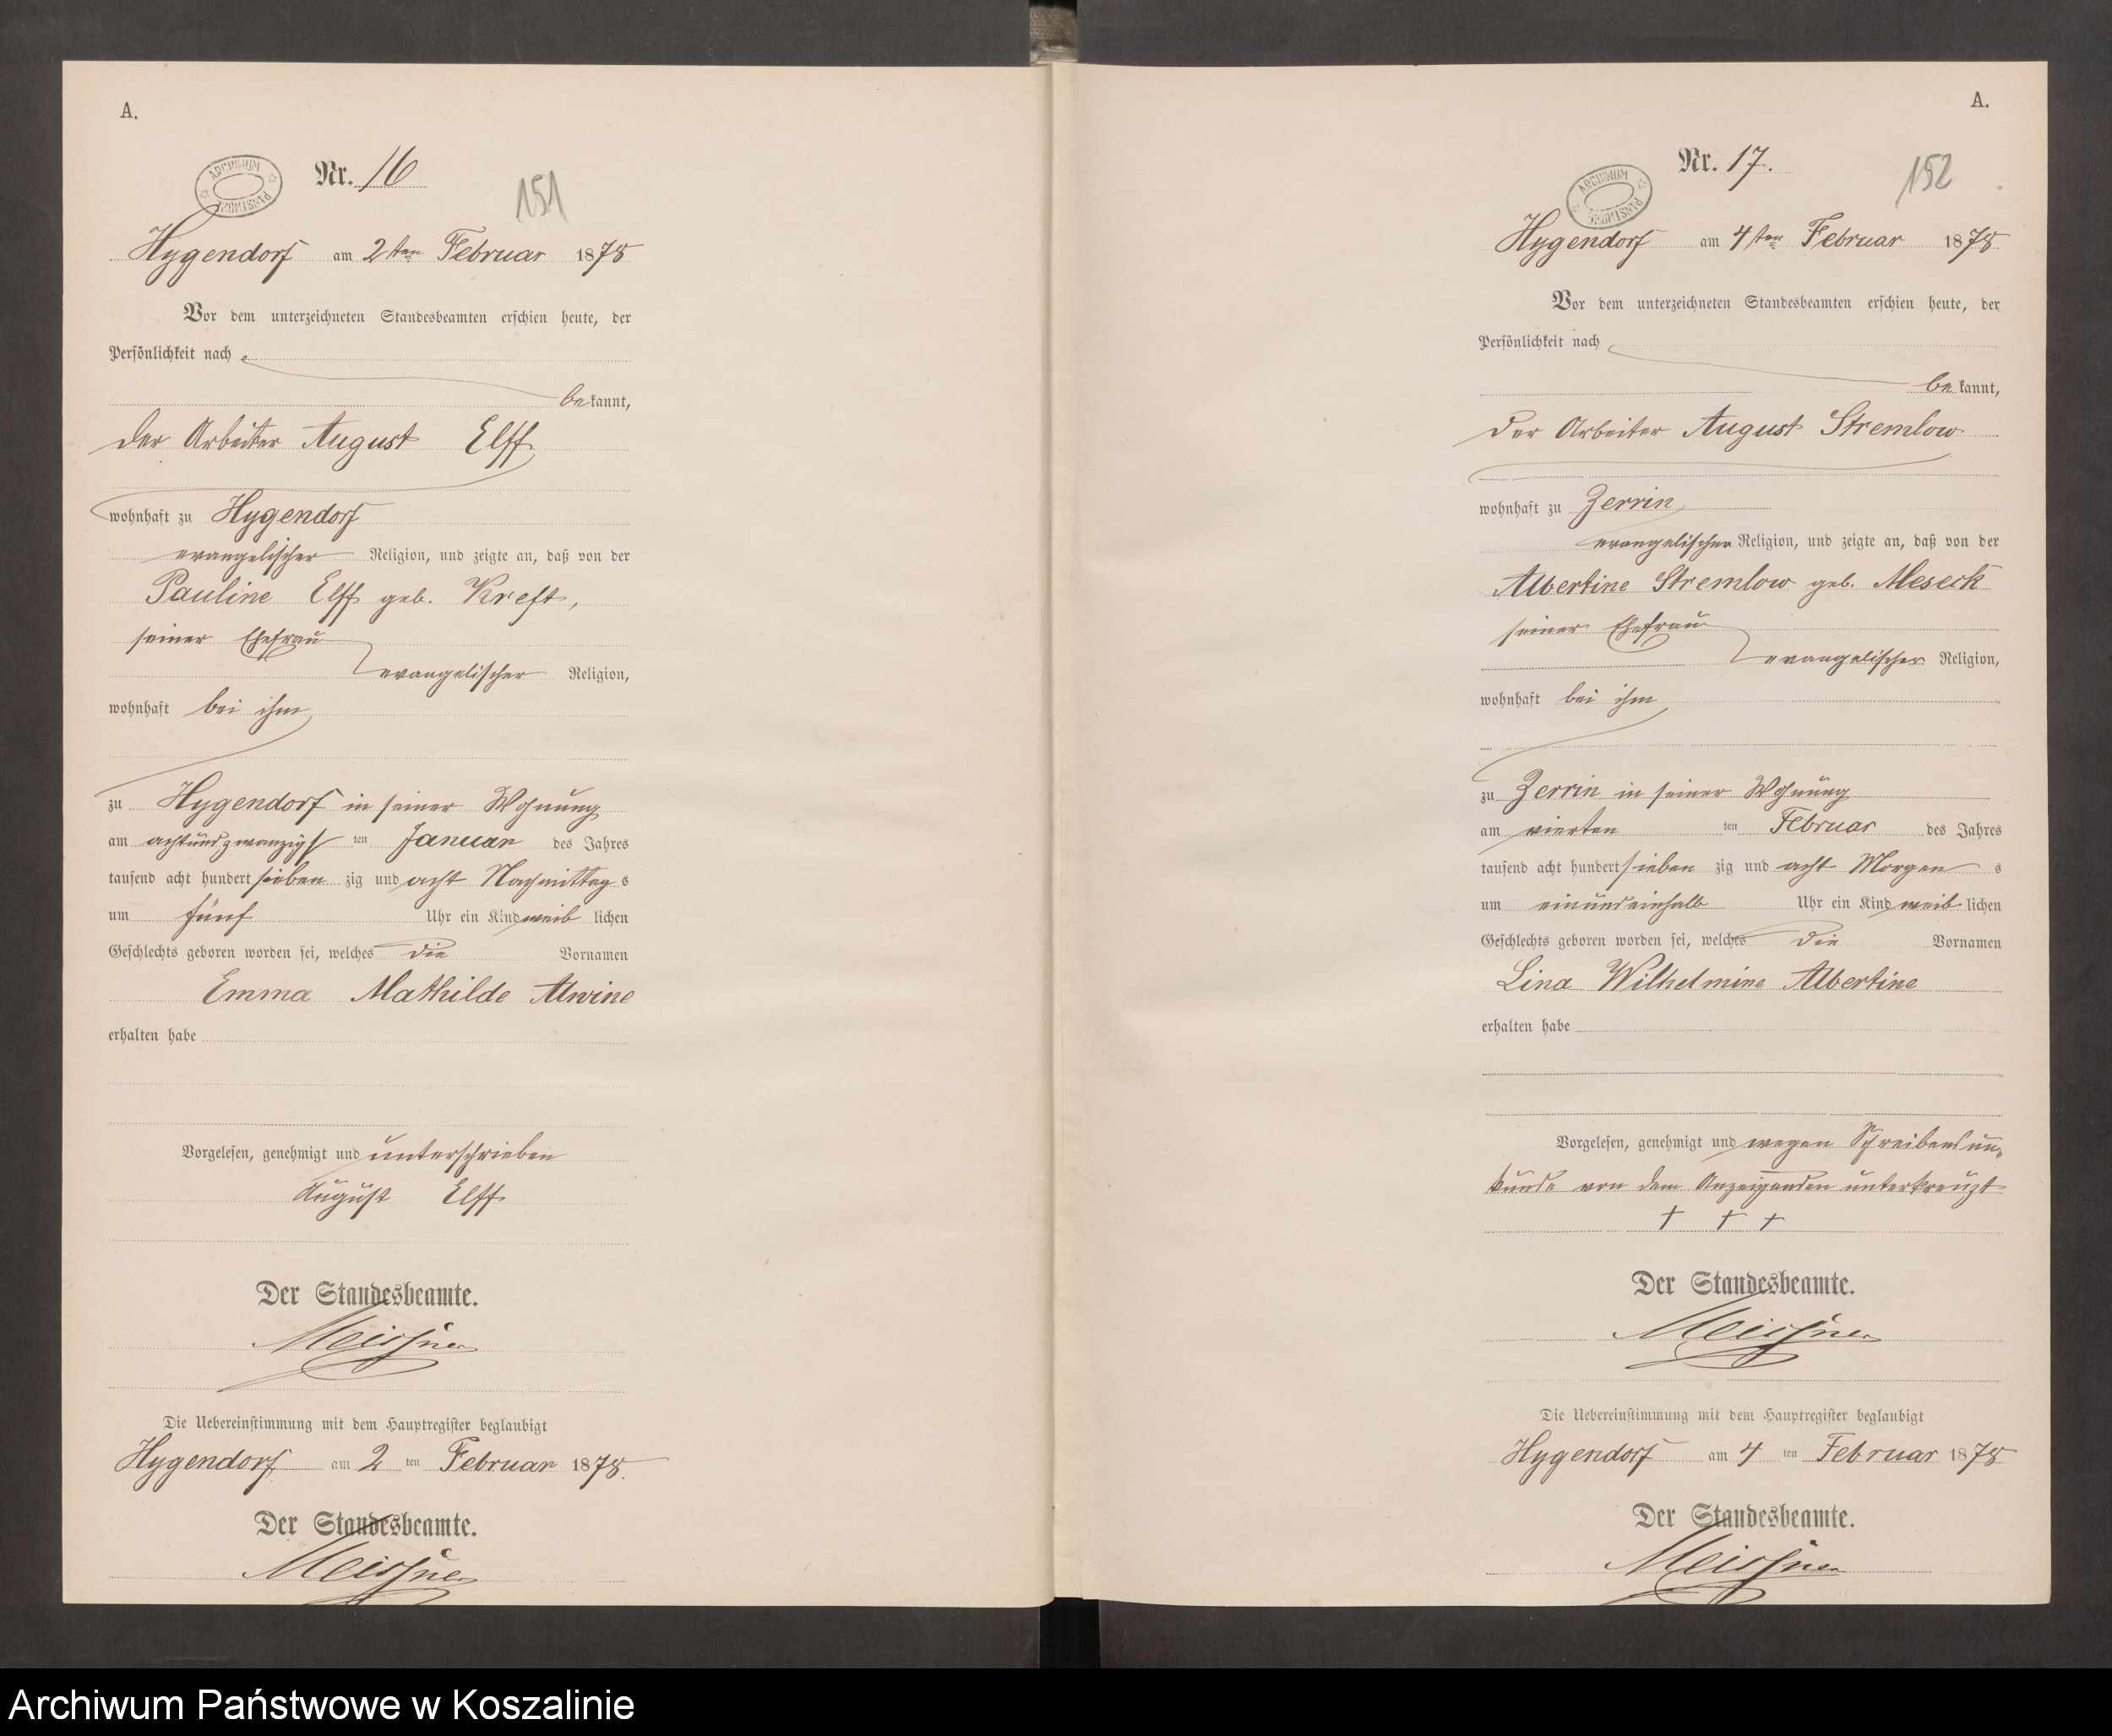 A.
ARCHIWUM PAŃSTWOWE
Nr. 16
151
Hygendorf am 2ten Februar 1878
Vor dem unterzeichneten Standesbeamten erschien heute, der
Persönlichkeit nach
bekannt,
der Arbeiter August Elff
wohnhaft zu Hygendorf
evangelischer Religion, und zeigte an, daß von der
Pauline Elff geb. Kreft,
seiner Ehefrau
evangelischer Religion,
wohnhaft bei ihm
zu Hygendorf in seiner Wohnung
am achtundzwanzigsten Januar des Jahres
tausend acht hundert siebenzig und acht Nachmittags
um fünf Uhr ein Kind weiblichen
Geschlechts geboren worden sei, welches die Vornamen
Emma Mathilde Alwine
erhalten habe
Vorgelesen, genehmigt und unterschrieben
August Elff
Der Standesbeamte.
Meissner
Die Uebereinstimmung mit dem Hauptregister beglaubigt
Hygendorf am 2ten Februar 1878.
Der Standesbeamte.
Meissner
A.
ARCHIWUM PAŃSTWOWE
Nr. 17.
152
Hygendorf am 4ten Februar 1878
Vor dem unterzeichneten Standesbeamten erschien heute, der
Persönlichkeit nach
bekannt,
der Arbeiter August Stremlow
wohnhaft zu Zerrin
evangelischer Religion, und zeigte an, daß von der
Albertine Stremlow geb. Meseck
seiner Ehefrau
evangelischer Religion,
wohnhaft bei ihm
zu Zerrin in seiner Wohnung
am vierten ten Februar des Jahres
tausend acht hundert siebenzig und acht Morgens
um einundeinhalb Uhr ein Kind weiblichen
Geschlechts geboren worden sei, welches die Vornamen
Lina Wilhelmine Albertine
erhalten habe
Vorgelesen, genehmigt und wegen Schreibensun-
kunde von dem Anzeigenden unterkreuzt
† † †
Der Standesbeamte.
Meissner
Die Uebereinstimmung mit dem Hauptregister beglaubigt
Hygendorf am 4ten Februar 1878
Der Standesbeamte.
Meissner
Archiwum Państwowe w Koszalinie